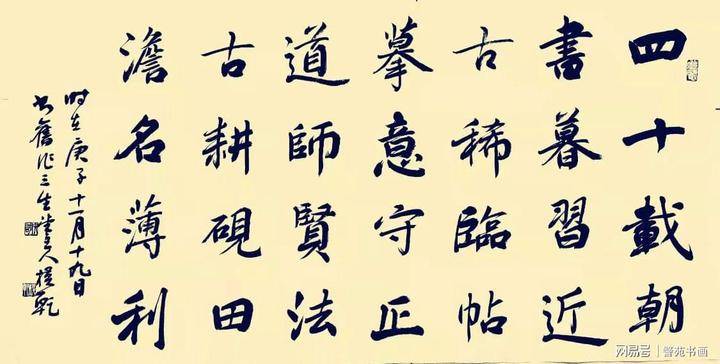 四十載朝
書暮習近
古稀臨帖
摹意守正
道師賢法
古耕硯田
澹名薄利
时在庚子十一月十九日
书舊作三生堂主人乾
网易号 | 警苑书画